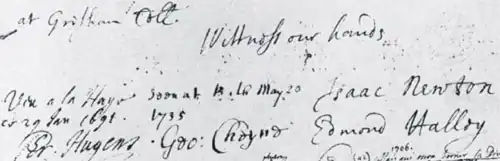 at Gresham Coll.
Wittness our hands
Veu a la Haye Soon at Bath May 20 Isaac Newton
ce 29 Jan 1691. 1735 Edmond Halley
Hugens. Geo: Cheyne
1706.